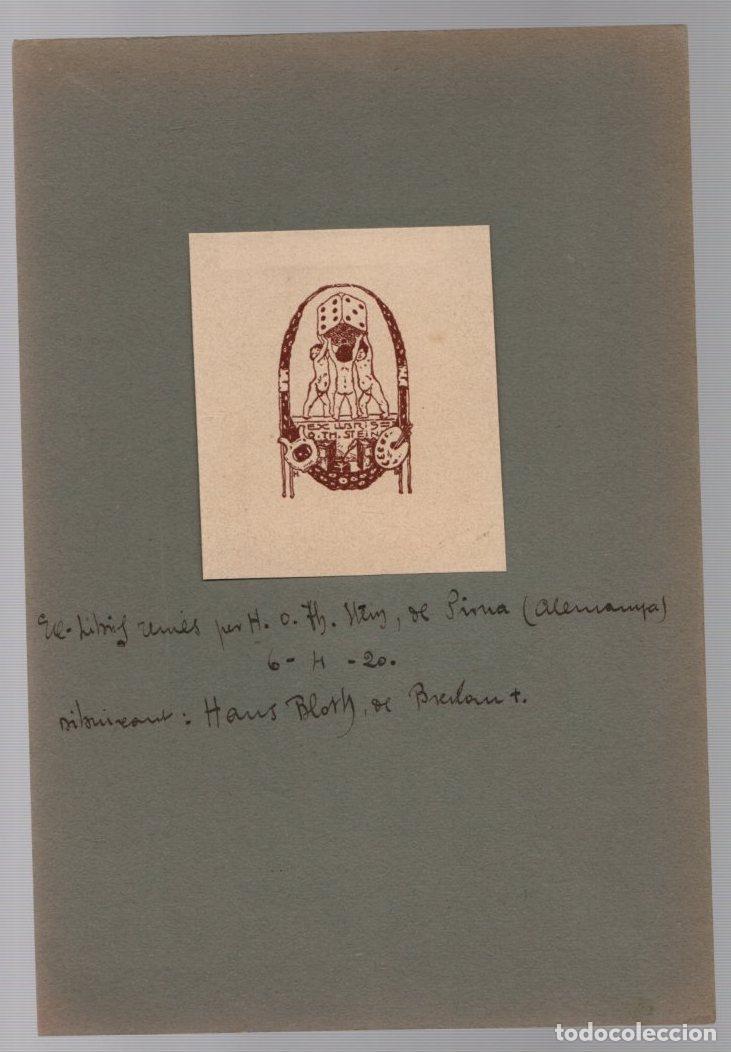 EX LIBRIS
O. TH. STEIN
Ex-Libris remés per H. O. Th. Stein, de Pirna (Alemanya)
6 - 4 - 20.
dibuixant: Hans Bloth, de Breslau +.
todocoleccion